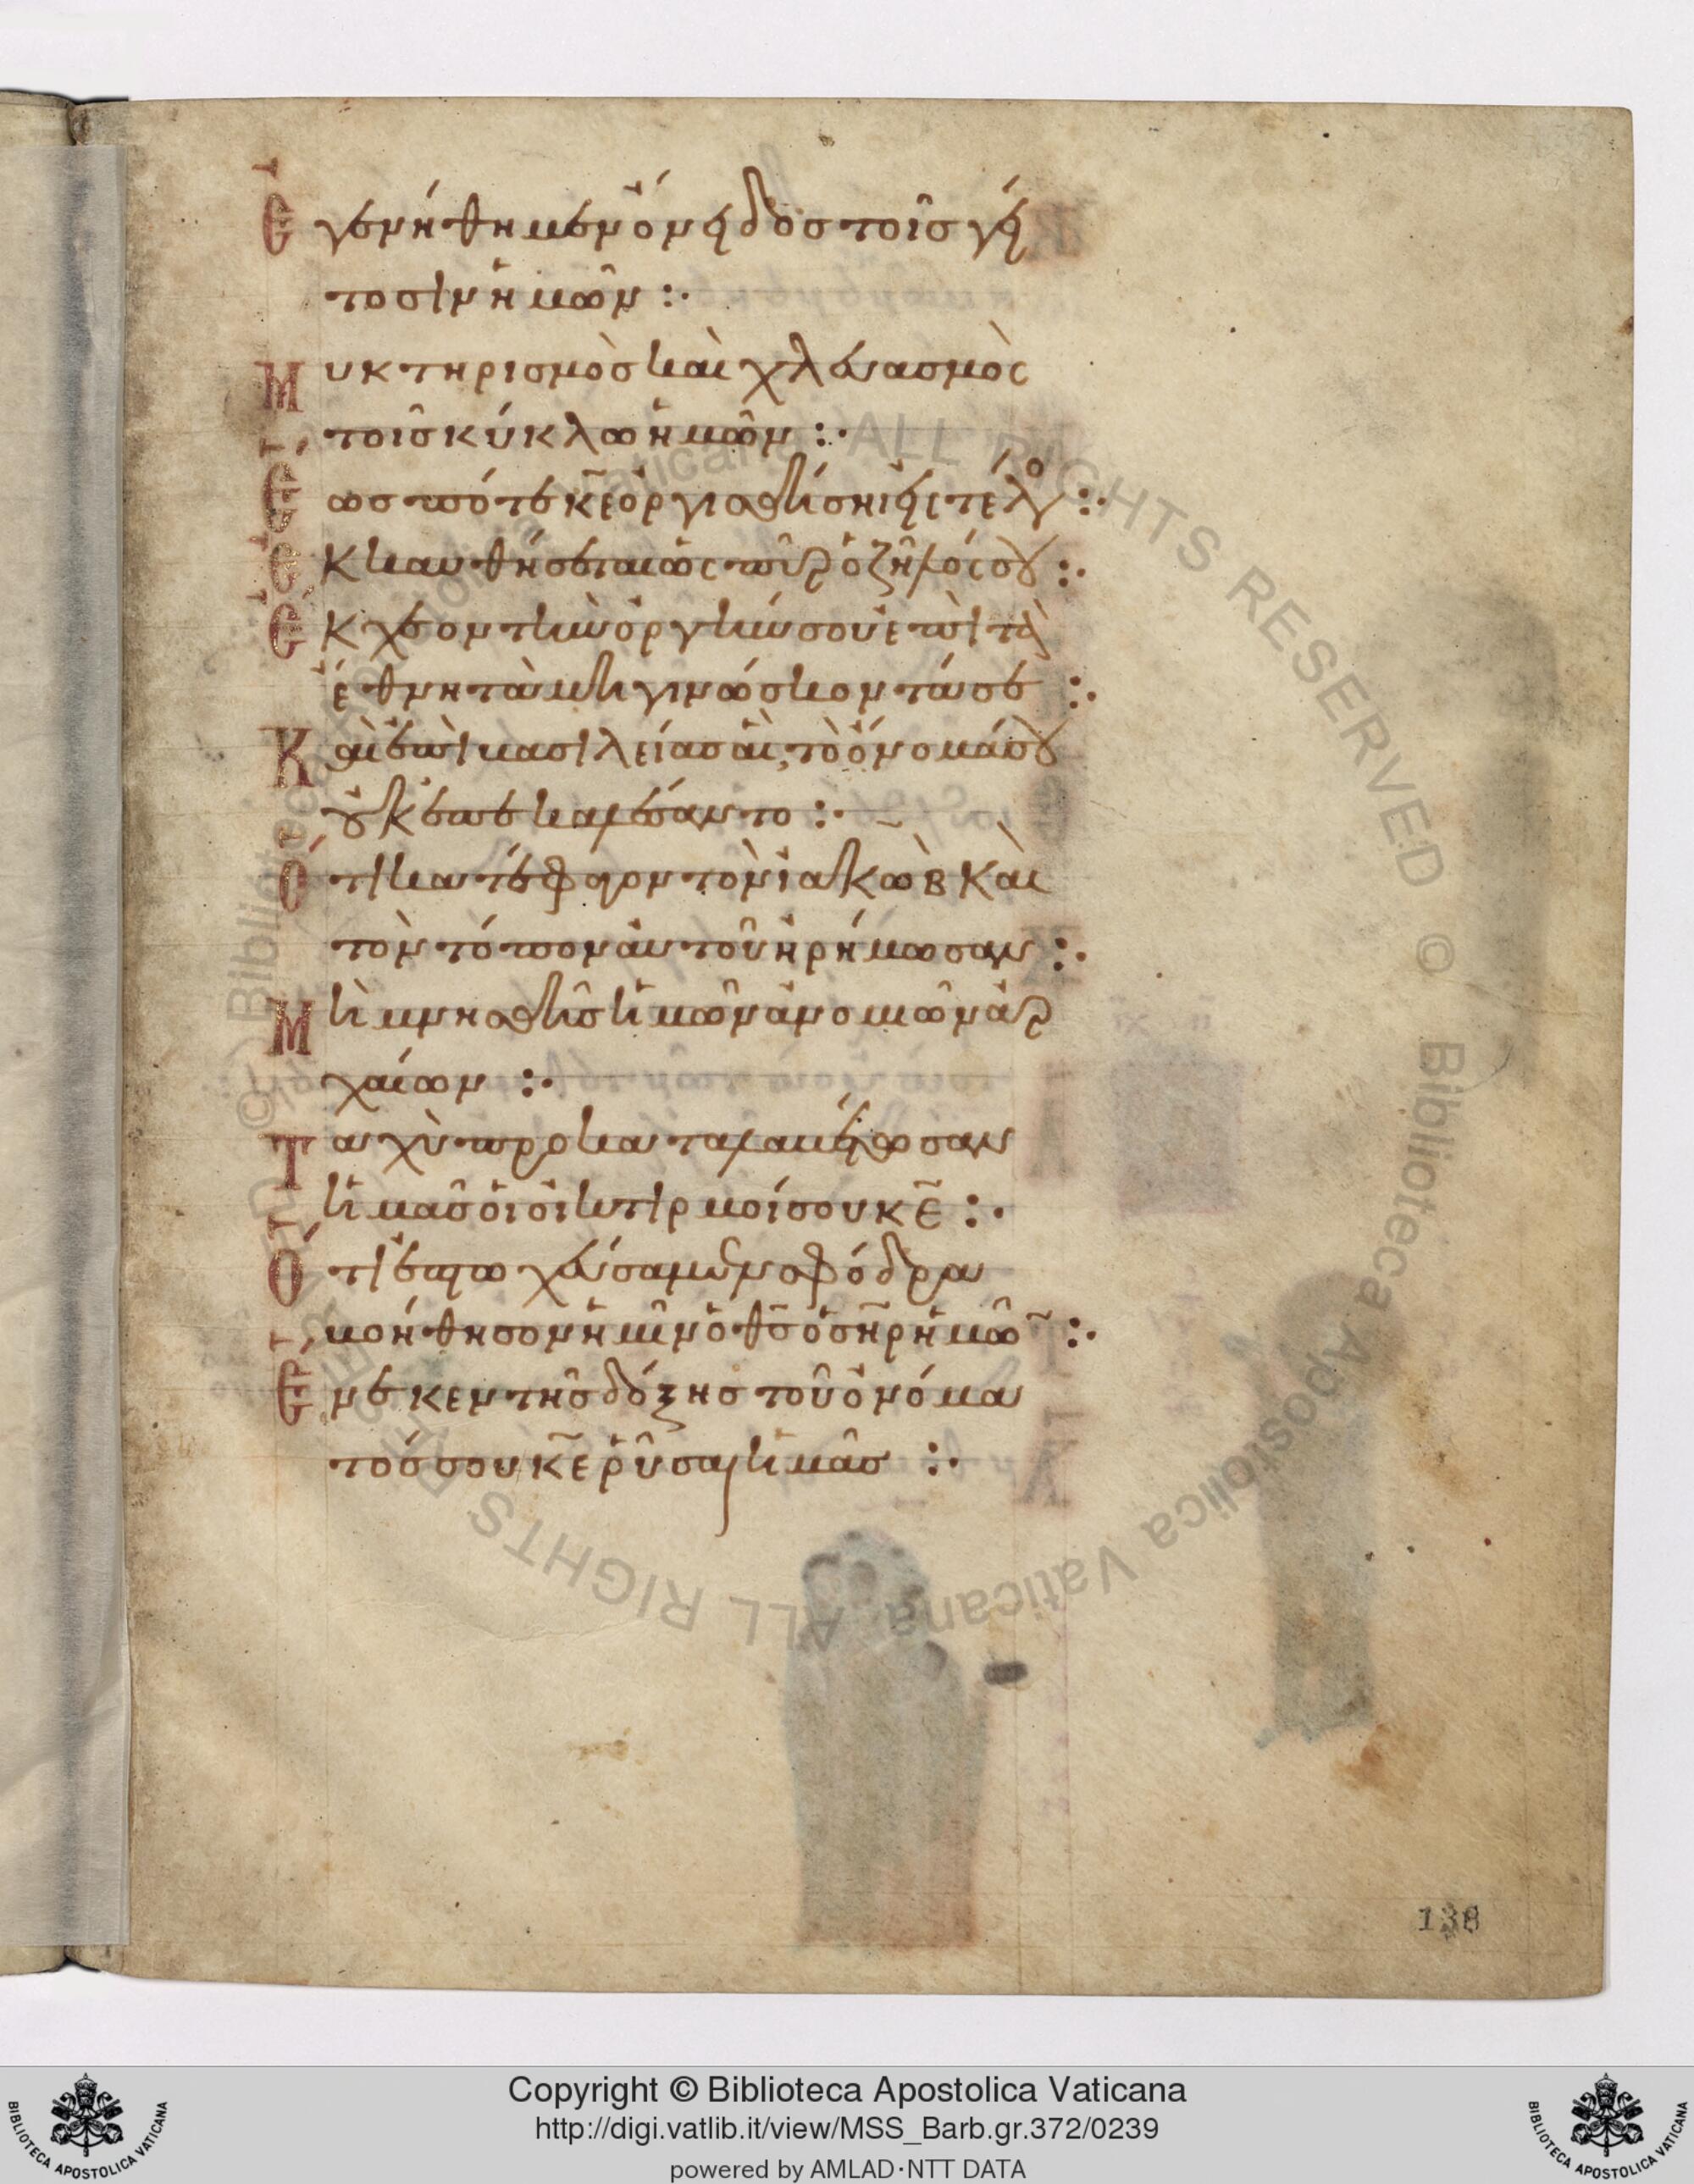 Ἐγενήθημεν ὄνειδος τοῖς γεί
τοσιν ἡμῶν :·
Μυκτηρισμὸς καὶ χλευασμὸς
τοῖς κύκλω ἡμῶν :·
Ἕως πότε κ̅ε̅ ὀργισθήση εἰς τέλο :·
Ἐκκαυθήσεται ὡς πῦρ ὁ ζῆλός σου :·
Ἔκχεον τὴν ὀργήν σου ἐπὶ τὰ
ἔθνη τὰ μὴ γινώσκοντά σε :·
Καὶ ἐπὶ βασιλείας αἳ τὸ ὄνομά σου
οὐκ ἐπεκαλέσαντο :·
Ὅτι κατέφαγον τὸν ἰακὼβ καὶ
τὸν τόπον αὐτοῦ ἠρήμωσαν :·
Μὴ μνησθῆς ἡμῶν ἀνομιῶν ἀρ
χαίων :·
Ταχὺ προκαταλαβέτωσαν
ἡμᾶς οἱ οἰκτιρμοί σου κ̅ε̅ :·
Ὅτι ἐπτωχεύσαμεν σφόδρα
βοήθησον ἡμῖν ὁ θ̅ς̅ ὁ σ̅η̅ρ ἡμῶ :·
Ἕνεκεν τῆς δόξης τοῦ ὀνόμα
τός σου κ̅ε̅ ῥῦσαι ἡμᾶς :·
138
© Biblioteca Apostolica Vaticana ALL RIGHTS RESERVED © Biblioteca Apostolica Vaticana ALL RIGHTS RESERVED
BIBLIOTECA APOSTOLICA VATICANA
Copyright © Biblioteca Apostolica Vaticana
http://digi.vatlib.it/view/MSS_Barb.gr.372/0239
powered by AMLAD·NTT DATA
BIBLIOTECA APOSTOLICA VATICANA